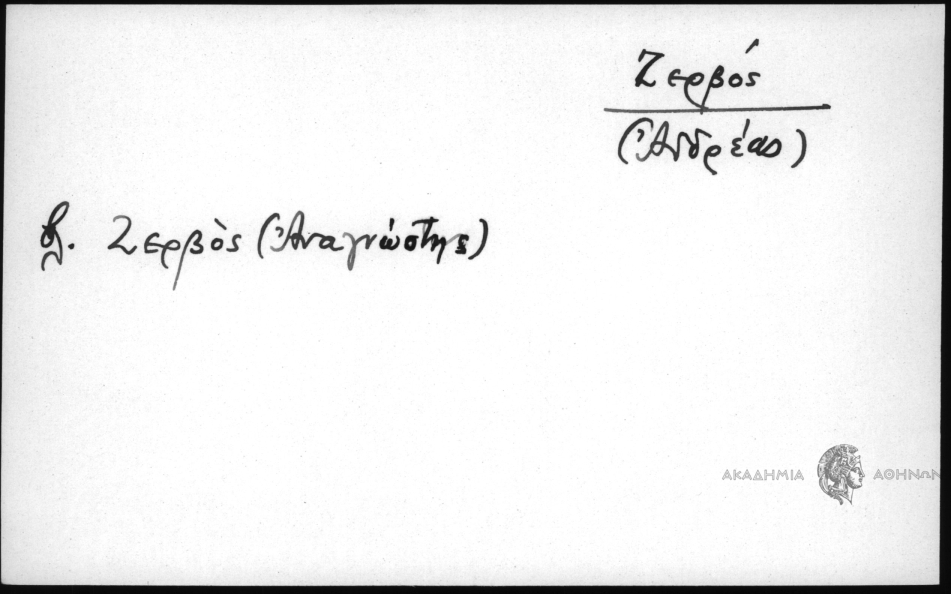 Ζερβός
(Ἀνδρέας)
βλ. Ζερβὸς (Ἀναγνώστης)
ΑΚΑΔΗΜΙΑ ΑΘΗΝΩΝ